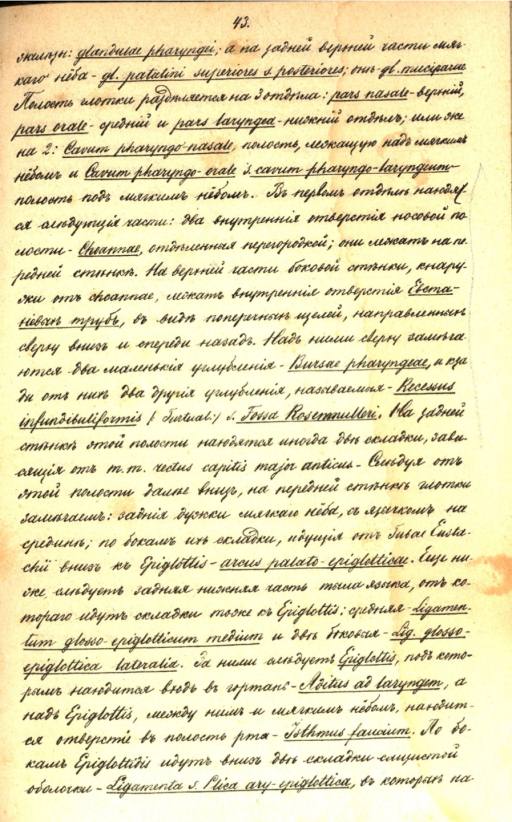 43.
железъ: glandulae pharyngei; а на задней верхней части мяг-
каго нёба - gl. palatini superiores s. posteriores; онѣ gl. muciparae
Полость глотки раздѣляется на 3 отдѣла: pars nasale - верхній,
pars orale - средній и pars laryngea - нижній отдѣлъ; или же
на 2: Cavum pharyngo-nasale, полость, лежащую надъ мягкимъ
нёбомъ и Cavum pharyngo-orale s. cavum pharyngo-laryngeum -
полость подъ мягкимъ нёбомъ. Въ первомъ отдѣлѣ находят-
ся слѣдующія части: два внутреннія отверстія носовой по-
лости - Choannae, отдѣленныя перегородкой; они лежатъ на пе-
редней стѣнкѣ. На верхней части боковой стѣнки, кнару-
жи отъ choannae, лежатъ внутреннія отверстія Евста-
хіевыхъ трубъ, въ видѣ поперечныхъ щелей, направленныхъ
сверху внизъ и спереди назадъ. Надъ ними сверху замѣча-
ются два маленькія углубленія - Bursae pharyngeae, и кза-
ди отъ нихъ два другія углубленія, называемыя - Recessus
infundibuliformis (Tortual:) s. Fossa Rosenmulleri. На задней
стѣнкѣ этой полости находятся иногда двѣ складки, зави-
сящія отъ m. m. rectus capitis major anticus - Слѣдуя отъ
этой полости далѣе внизъ, на передней стѣнкѣ глотки
замѣчаемъ: заднія дужки мягкаго нёба, съ язычкомъ на
срединѣ; по бокамъ ихъ складки, идущія отъ Tubae Eusta-
chii внизъ къ Epiglottis - arcus palato-epiglotticae. Еще ни-
же слѣдуетъ задняя нижняя часть тыла языка, отъ ко-
тораго идутъ складки тоже къ Epiglottis: средняя - Ligamen-
tum glosso-epiglotticum medium и двѣ боковыя - Lig. glosso-
epiglottica lateralia. За ними слѣдуетъ Epiglottis, подъ кото-
рымъ находится входъ въ гортань - Aditus ad laryngem, а
надъ Epiglottis, между нимъ и мягкимъ нёбомъ, находит-
ся отверстіе въ полость рта - Isthmus faucium. По бо-
камъ Epiglottidis идутъ внизъ двѣ складки слизистой
оболочки - Ligamenta s. Plica ary-epiglottica, въ которыхъ на-